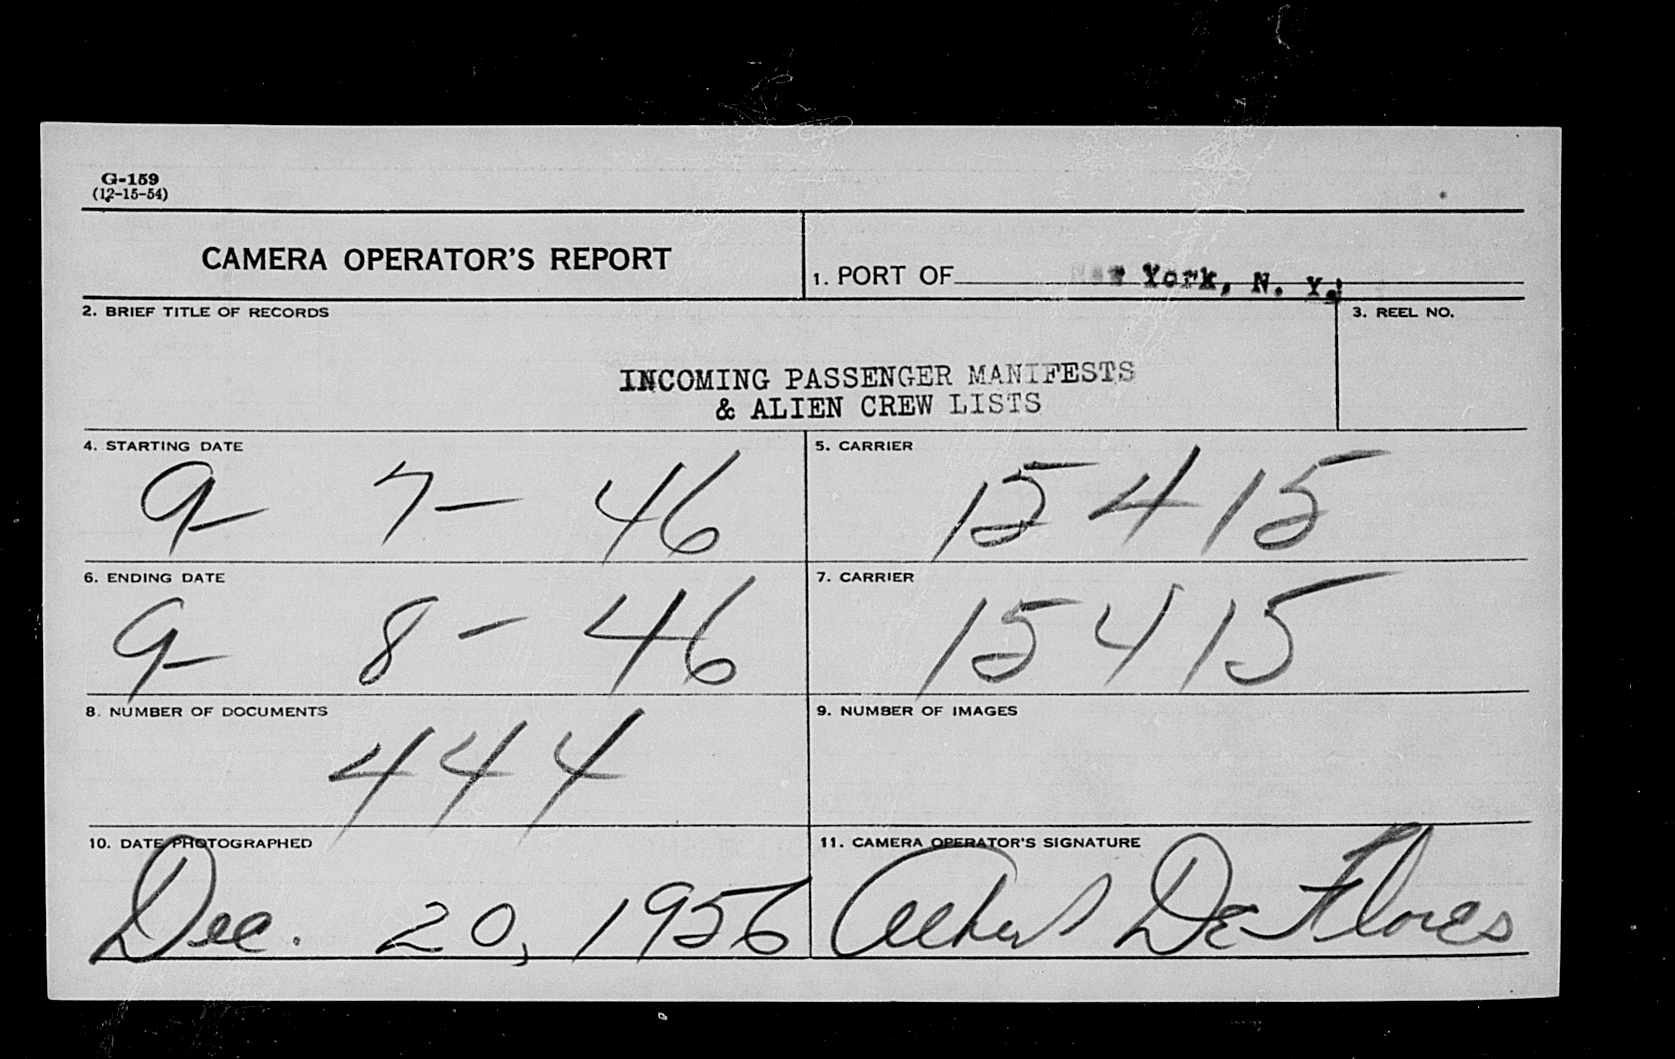 G-159
(12-15-54)
CAMERA OPERATOR'S REPORT
1. PORT OF New York, N. Y.
2. BRIEF TITLE OF RECORDS
INCOMING PASSENGER MANIFESTS
& ALIEN CREW LISTS
3. REEL NO.
4. STARTING DATE
9- 7- 46
5. CARRIER
15415
6. ENDING DATE
9- 8- 46
7. CARRIER
15415
8. NUMBER OF DOCUMENTS
444
9. NUMBER OF IMAGES
10. DATE PHOTOGRAPHED
Dec. 20, 1956
11. CAMERA OPERATOR'S SIGNATURE
De Flores